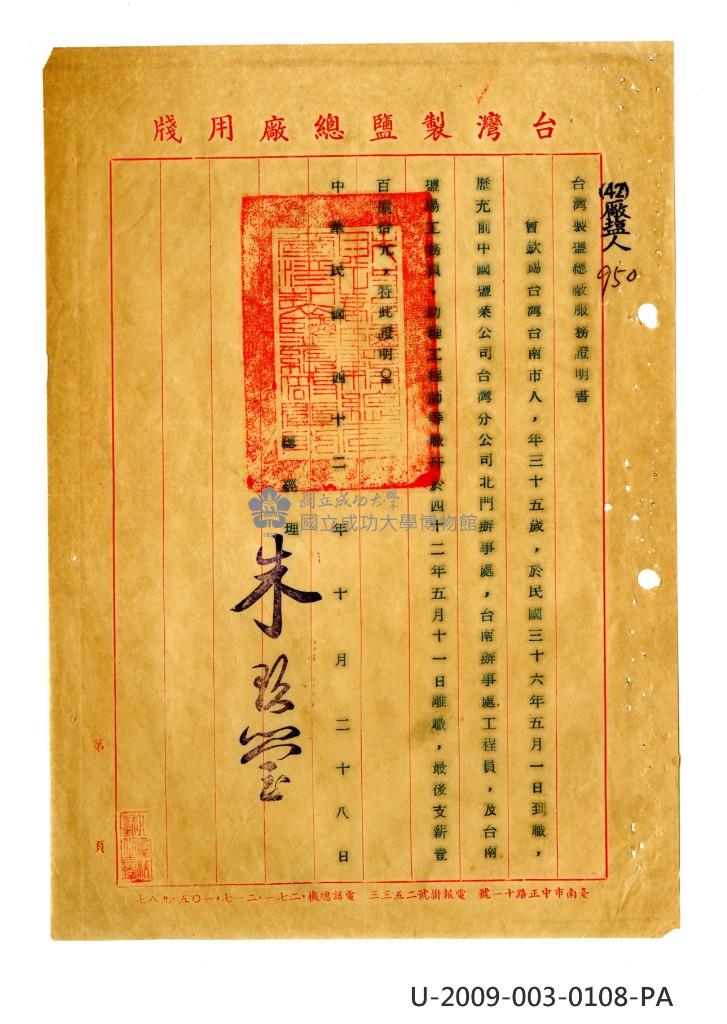 台灣製鹽總廠用牋
(42)廠塩人
950
台灣製塩總廠服務證明書
曾欽錫台灣台南市人，年三十五歲，於民國三十六年五月一日到職，
歷充前中國塩業公司台灣分公司北門辦事處，台南辦事處工程員，及台南
塩場工務員，助理工程師等職并於四十二年五月十一日離職，最後支薪壹
百捌拾元，特此證明。
中華民國四十二年十月二十八日
總經理
朱玖瑩
國立成功大學
國立成功大學博物館
第 頁
臺南市中正路十一號 電報掛號二五三三 電話總機：二七一·二一七·一〇五·九八七
U-2009-003-0108-PA